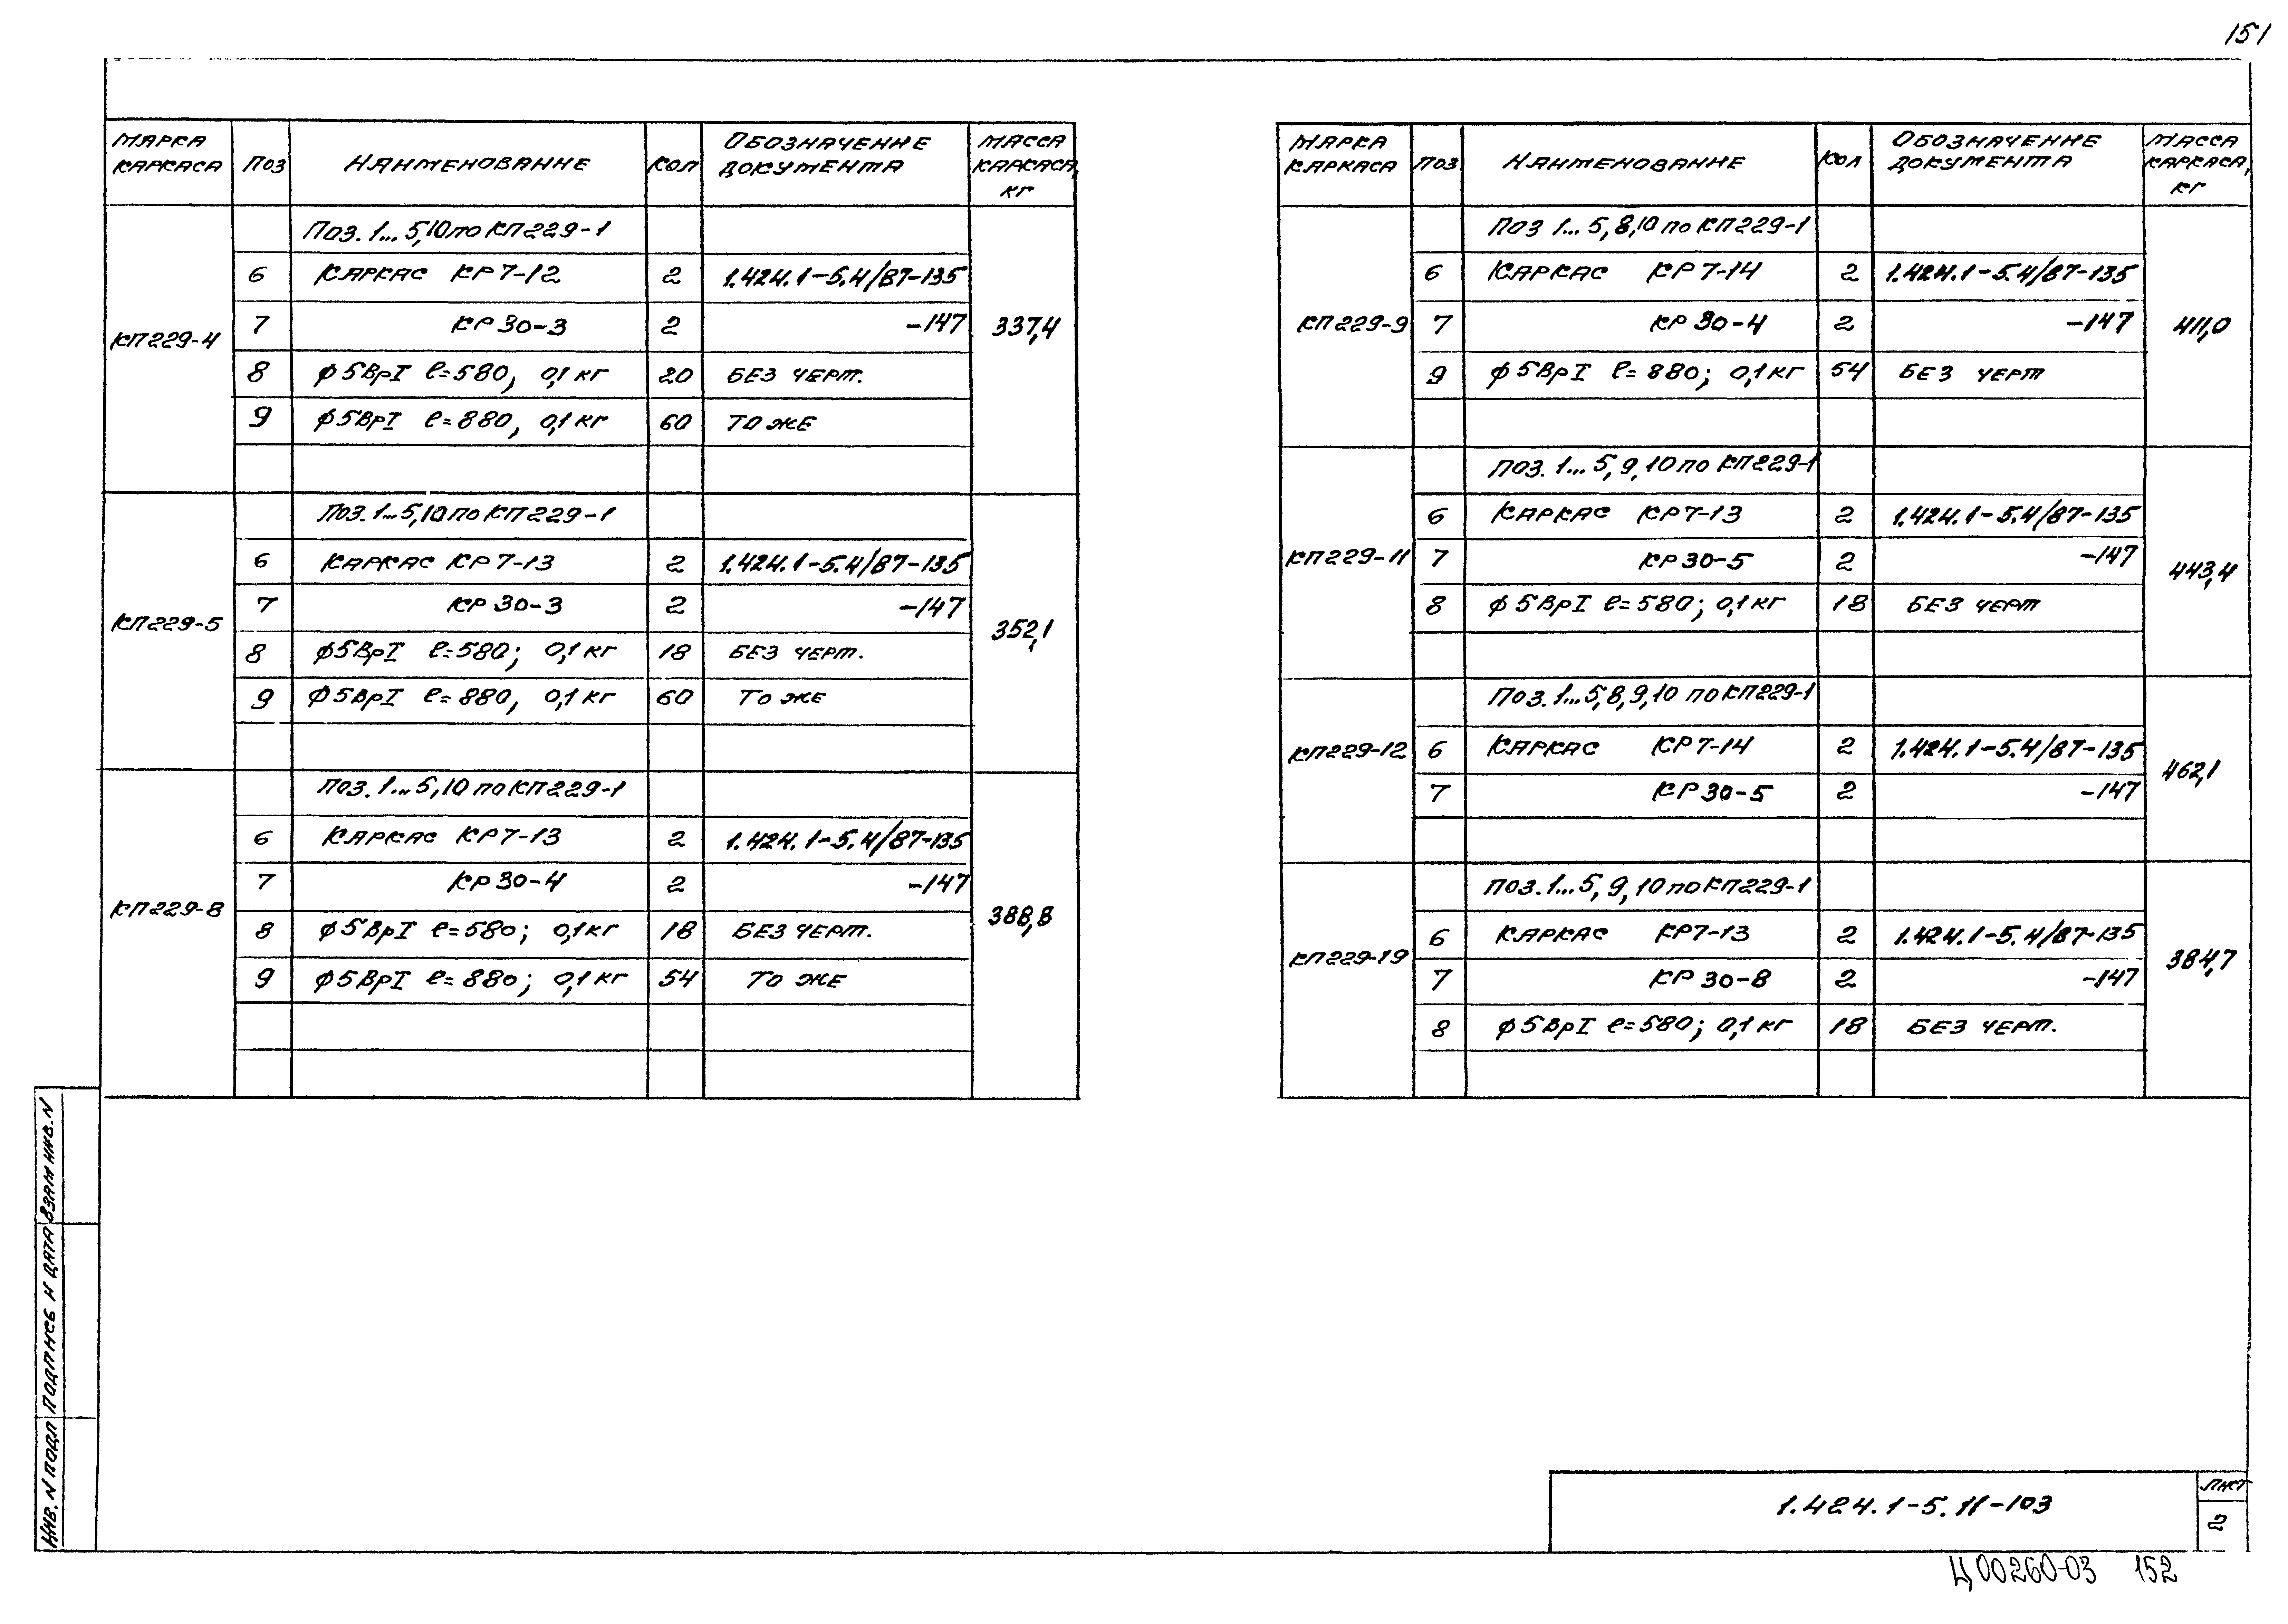 151
МАРКА КАРКАСА ПОЗ НАИМЕНОВАНИЕ КОЛ ОБОЗНАЧЕНИЕ ДОКУМЕНТА МАССА КАРКАСА, КГ
КП229-4 337,4
ПОЗ. 1... 5,10 по КП229-1
6 КАРКАС КР7-12 2 1.424.1-5.4/87-135
7 КР30-3 2 -147
8 ϕ5ВрI ℓ=580, 0,1 кг 20 БЕЗ ЧЕРТ.
9 ϕ5ВрI ℓ=880, 0,1 кг 60 ТО ЖЕ
КП229-5 352,1
ПОЗ. 1... 5,10 по КП229-1
6 КАРКАС КР7-13 2 1.424.1-5.4/87-135
7 КР30-3 2 -147
8 ϕ5ВрI ℓ=580; 0,1 кг 18 БЕЗ ЧЕРТ.
9 ϕ5ВрI ℓ=880, 0,1 кг 60 ТО ЖЕ
КП229-8 388,8
ПОЗ. 1... 5,10 по КП229-1
6 КАРКАС КР7-13 2 1.424.1-5.4/87-135
7 КР30-4 2 -147
8 ϕ5ВрI ℓ=580; 0,1 кг 18 БЕЗ ЧЕРТ.
9 ϕ5ВрI ℓ=880; 0,1 кг 54 ТО ЖЕ
МАРКА КАРКАСА ПОЗ НАИМЕНОВАНИЕ КОЛ ОБОЗНАЧЕНИЕ ДОКУМЕНТА МАССА КАРКАСА, КГ
КП229-9 411,0
ПОЗ 1... 5,8,10 по КП229-1
6 КАРКАС КР7-14 2 1.424.1-5.4/87-135
7 КР30-4 2 -147
9 ϕ5ВрI ℓ=880; 0,1 кг 54 БЕЗ ЧЕРТ
КП229-11 443,4
ПОЗ. 1... 5, 9, 10 по КП229-1
6 КАРКАС КР7-13 2 1.424.1-5.4/87-135
7 КР30-5 2 -147
8 ϕ5ВрI ℓ=580; 0,1 кг 18 БЕЗ ЧЕРТ
КП229-12 462,1
ПОЗ. 1... 5,8,9,10 по КП229-1
6 КАРКАС КР7-14 2 1.424.1-5.4/87-135
7 КР30-5 2 -147
КП229-19 384,7
ПОЗ. 1... 5, 9, 10 по КП229-1
6 КАРКАС КР7-13 2 1.424.1-5.4/87-135
7 КР30-8 2 -147
8 ϕ5ВрI ℓ=580; 0,1 кг 18 БЕЗ ЧЕРТ.
ИНВ. N ПОДЛ ПОДПИСЬ И ДАТА ВЗАМ ИНВ. N
1.424.1-5.11-103
ЛИСТ
2
Ц00260-03 152